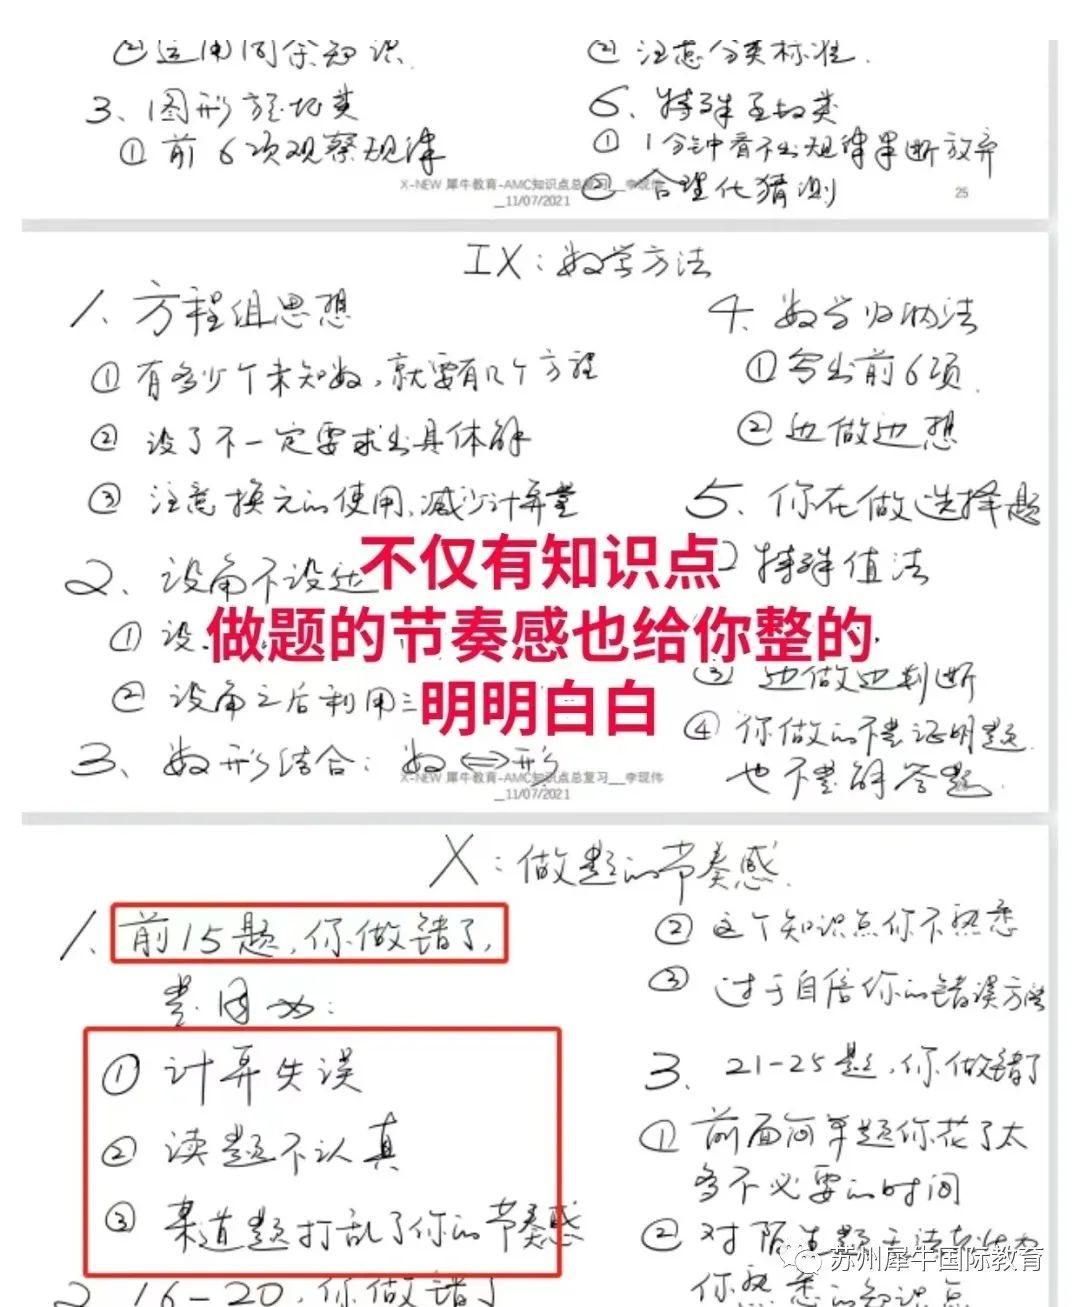 ②运用同余知识.
3、图形产地类
①前6项观察规律
②注意分类标准.
6、特殊至极类
①1分钟看不出规律果断放弃
②合理化猜测
X-NEW 犀牛教育-AMC知识点总复习__李现伟
_11/07/2021
25
IX：数学方法
1、方程组思想
①有多少个未知数，就要有几个方程
②设了不一定要求出具体解
③注意换元的使用、减少计算量
2、设角不设边
①设
②设角之后利用三
3、数形结合：数⇔形
4、数学归纳法
①写出前6项.
②边做边想
5、你在做选择题
特殊值法
③边做边判断
④你做的不是证明题.
也不是解答题.
不仅有知识点
做题的节奏感也给你整的
明明白白
X-NEW 犀牛教育-AMC知识点总复习__李现伟
_11/07/2021
X：做题的节奏感.
1、前15题，你做错了，
是因为：
①计算失误
②读题不认真
③某道题打乱了你的节奏感
2、16-20，你做错了
②这个知识点你不熟悉
③过于自信你的错误方法
3、21-25题，你做错了
①前面简单题你花了太
多不必要的时间
②对陌生题无法转化为
你熟悉的知识点
苏州犀牛国际教育